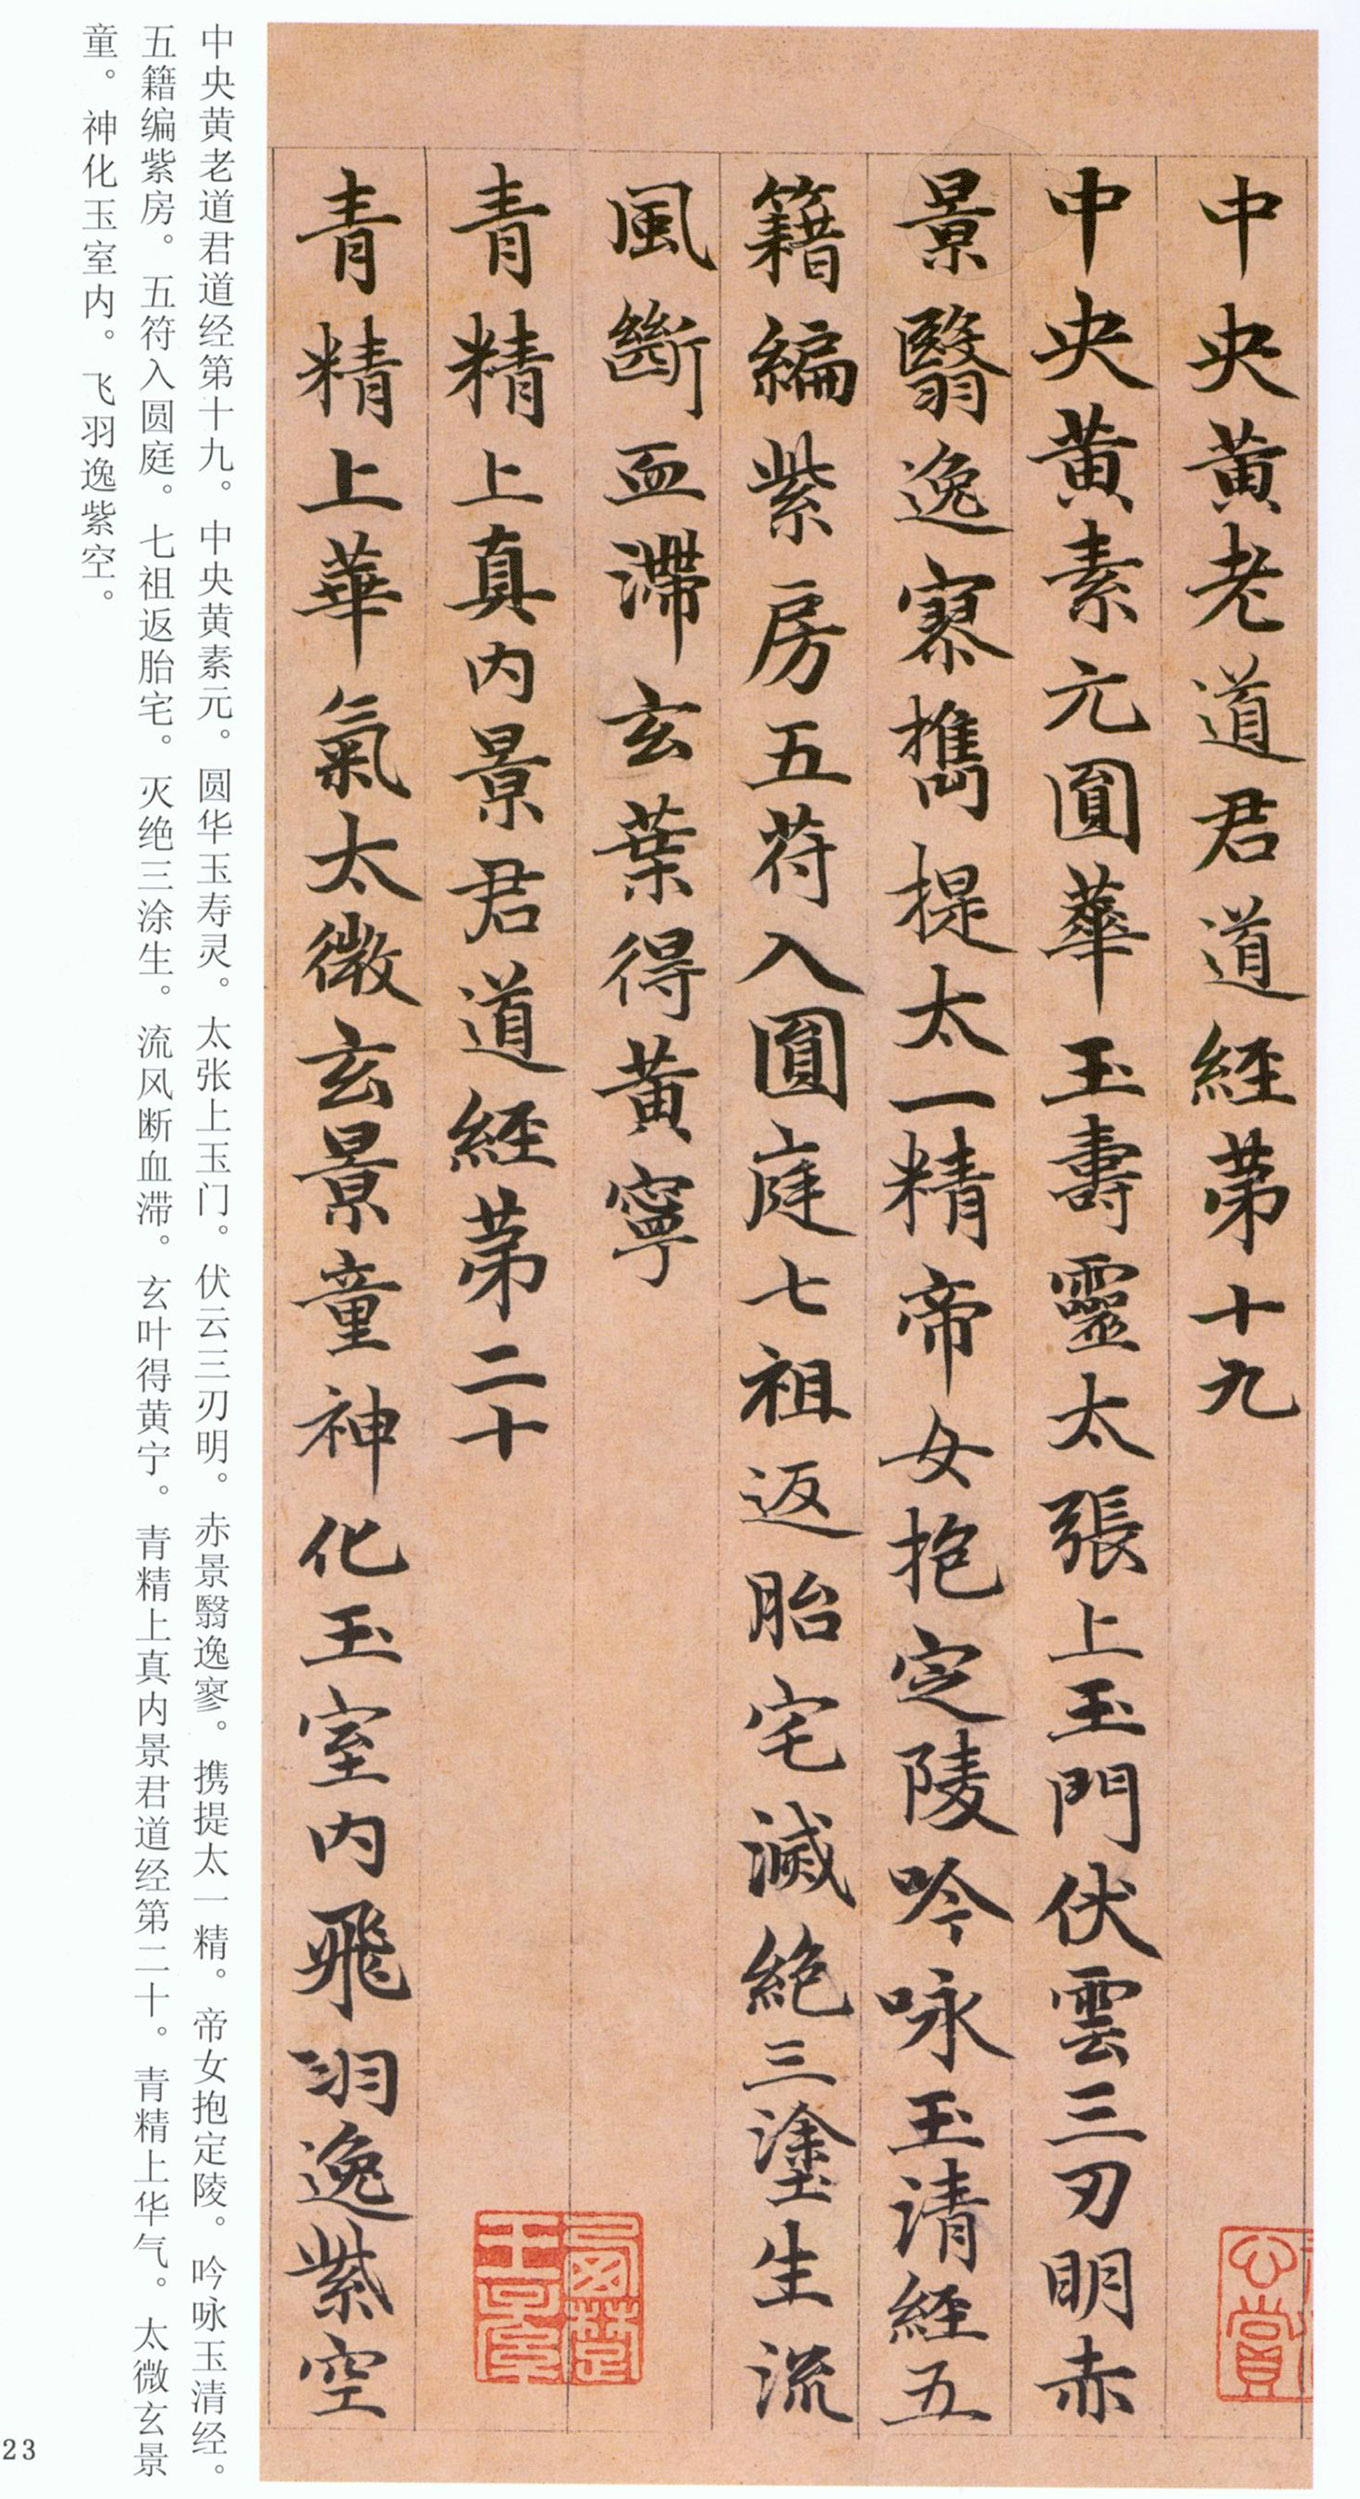 中央黄老道君道經第十九
中央黄素元圓華玉壽靈太張上玉門伏雲三刃明赤
景翳逸寥擕提太一精帝女抱定陵吟咏玉清經五
籍編紫房五符入圓庭七祖返胎宅滅絶三塗生流
風斷血滯玄葉得黄寧
青精上真内景君道經第二十
青精上華氣太微玄景童神化玉室内飛羽逸紫空
公賞
中央黄老道君道经第十九。中央黄素元。圆华玉寿灵。太张上玉门。伏云三刃明。赤景翳逸寥。携提太一精。帝女抱定陵。吟咏玉清经。
五籍编紫房。五符入圆庭。七祖返胎宅。灭绝三涂生。流风断血滞。玄叶得黄宁。青精上真内景君道经第二十。青精上华气。太微玄景
童。神化玉室内。飞羽逸紫空。
23